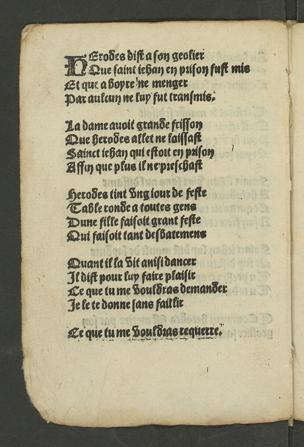 HErodes dist a son geolier
Que saint iehan en prison fust mis
Et que a boyre ne menger
Par aulcun ne luy fut transmis.
La dame auoit grande frisson
Que herodes aller ne laissast
Sainct iehan qui estoit en prison
Affin que plus il ne preschast
Herodes tint vng iour de feste
Table ronde a toutes gens
Dune fille faisoit grant feste
Qui faisoit tant desbatemens
Quant il la vit ainsi dancer
Il dist pour luy faire plaisir
Ce que tu me vouldras demander
Je le te donne sans faillir
Ce que tu me vouldras requerre